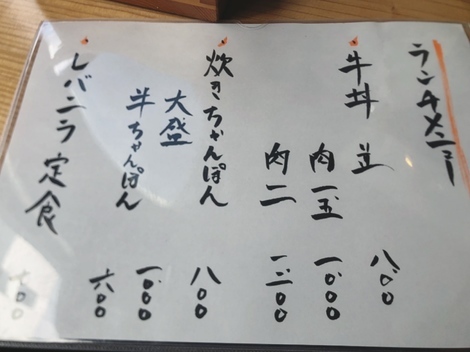 ランチメニュー
牛丼 並 八〇〇
肉一、五 一、〇〇〇
肉二 一、二〇〇
炊きちゃんぽん 八〇〇
大盛 一、〇〇〇
半ちゃんぽん 六〇〇
レバニラ定食